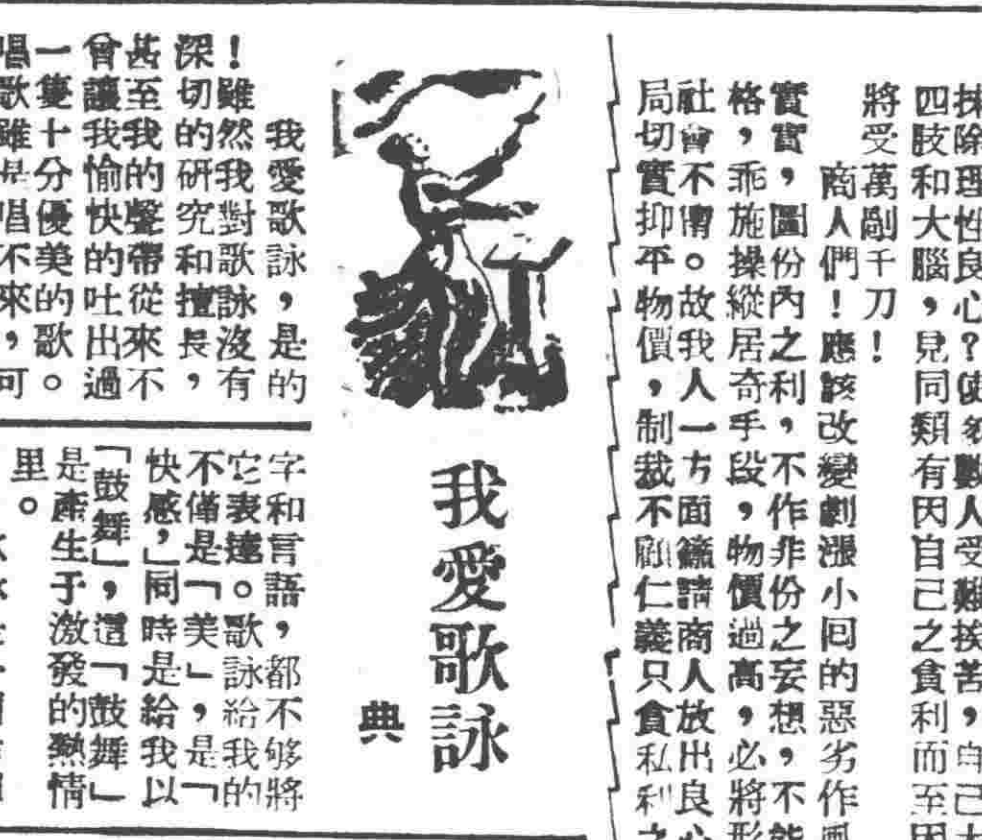 抹除理性良心？使多數人受難挨苦，自己
四肢和大腦，見同類有因自己之貪利而至因
將受萬剮千刀！
商人們！應該改變劇漲小回的惡劣作風
實實，圖份內之利，不作非份之妄想，不能
格，乖施操縱居奇手段，物價過高，必將形
社會不甯。故我人一方面籲請商人放出良心
局切實抑平物價，制裁不顧仁義只貪私利之
我愛歌詠
典
我愛歌詠，是的
！雖然我對歌詠沒有
深切的研究和擅長，
甚至我的聲帶從來不
會讓我愉快的吐出過
一隻十分優美的歌。
唱歌雖是唱不來，可
字和言語，都不够將
它表達。歌詠給我的
不僅是「美」，是「
快感，」同時是給我以
「鼓舞」，這「鼓舞」
是產生于激發的熱情
里。